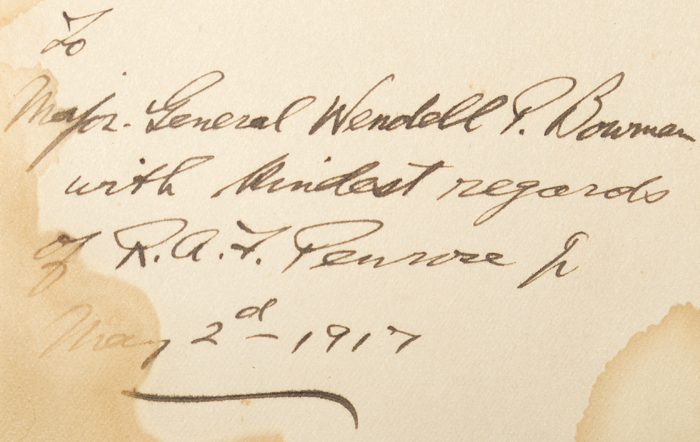 To
Major-General Wendell P. Bowman
with kindest regards
of R.A.F. Penrose Jr
May 2d - 1917